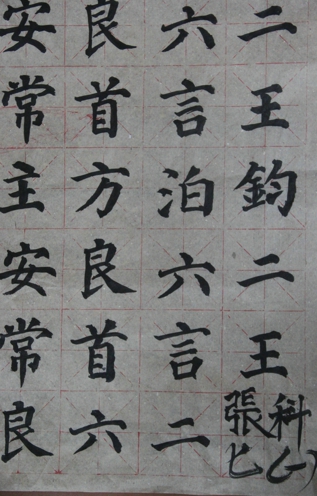 二王鈞二王
科(一)
張
六言泊六言二
良首方良首六
安常主安常良